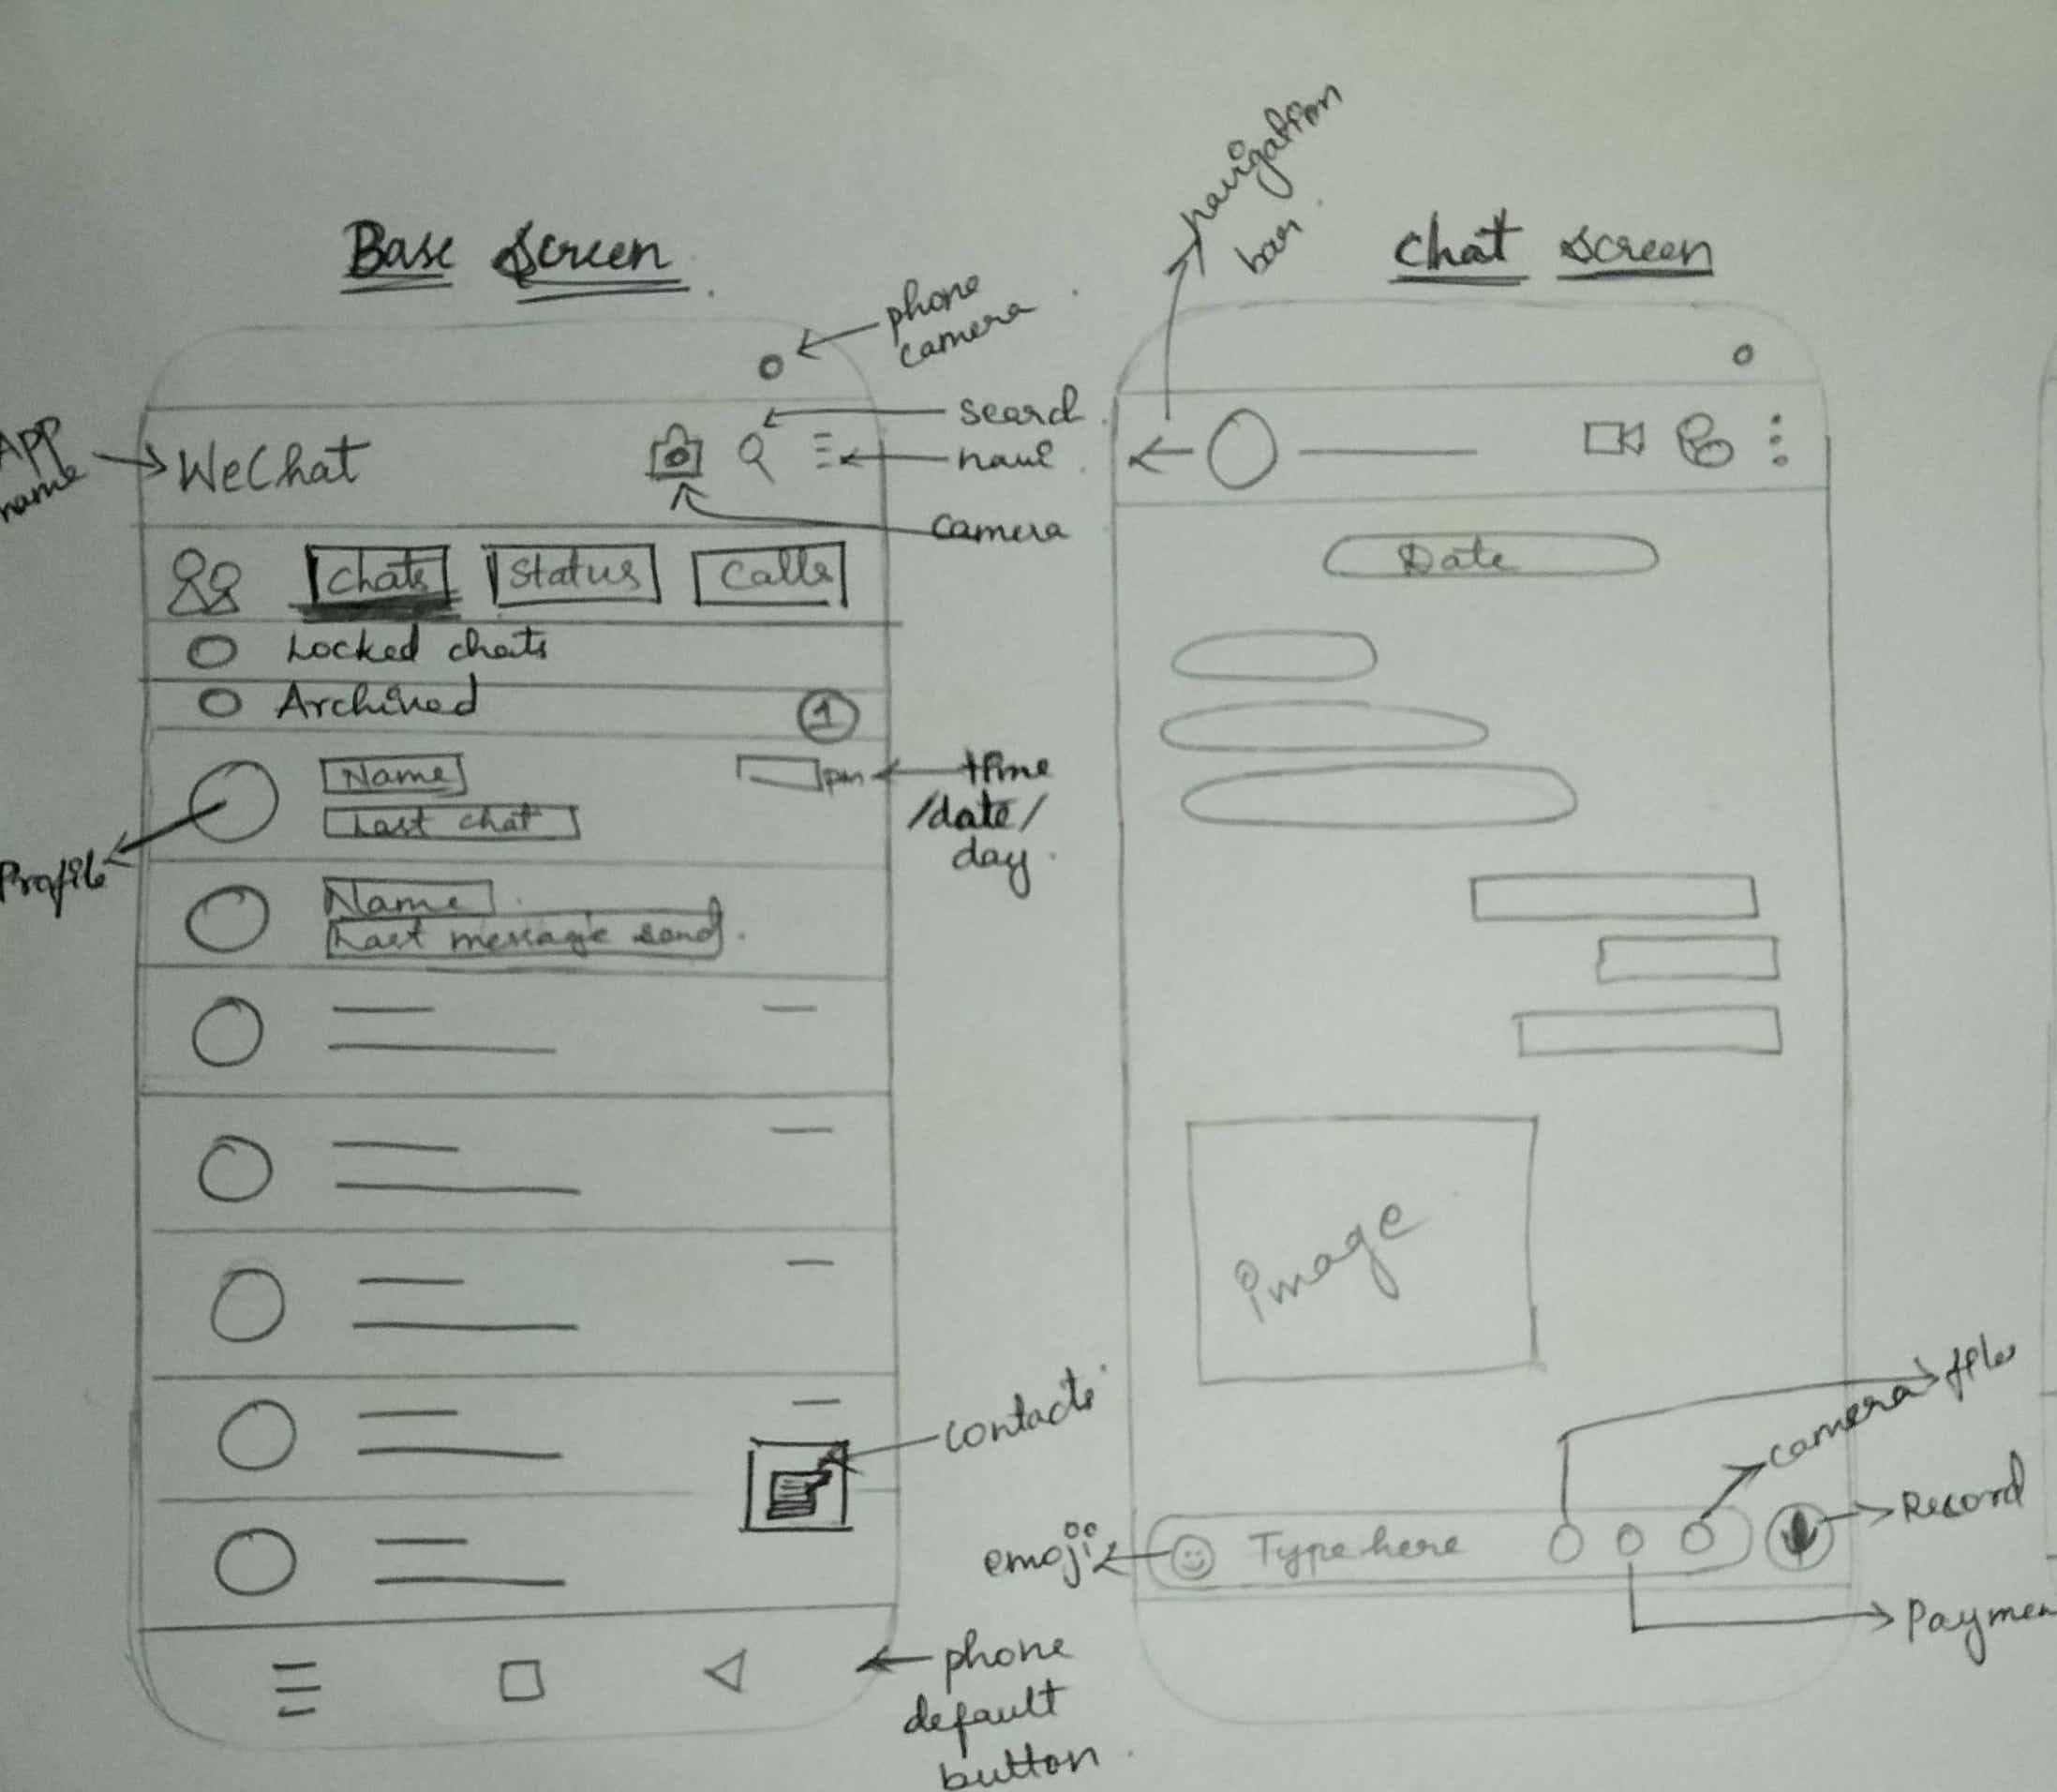 Base Screen
phone
camera
App
name
WeChat
search
camera
chats
Status
Calls
Locked chats
Archived
1
Name
pm
time
/date/
day
Last chat
Profile
Name
Last message send
contacts
phone
default
button
navigation
bar
Chat Screen
Date
image
emoji
Type here
camera
Record